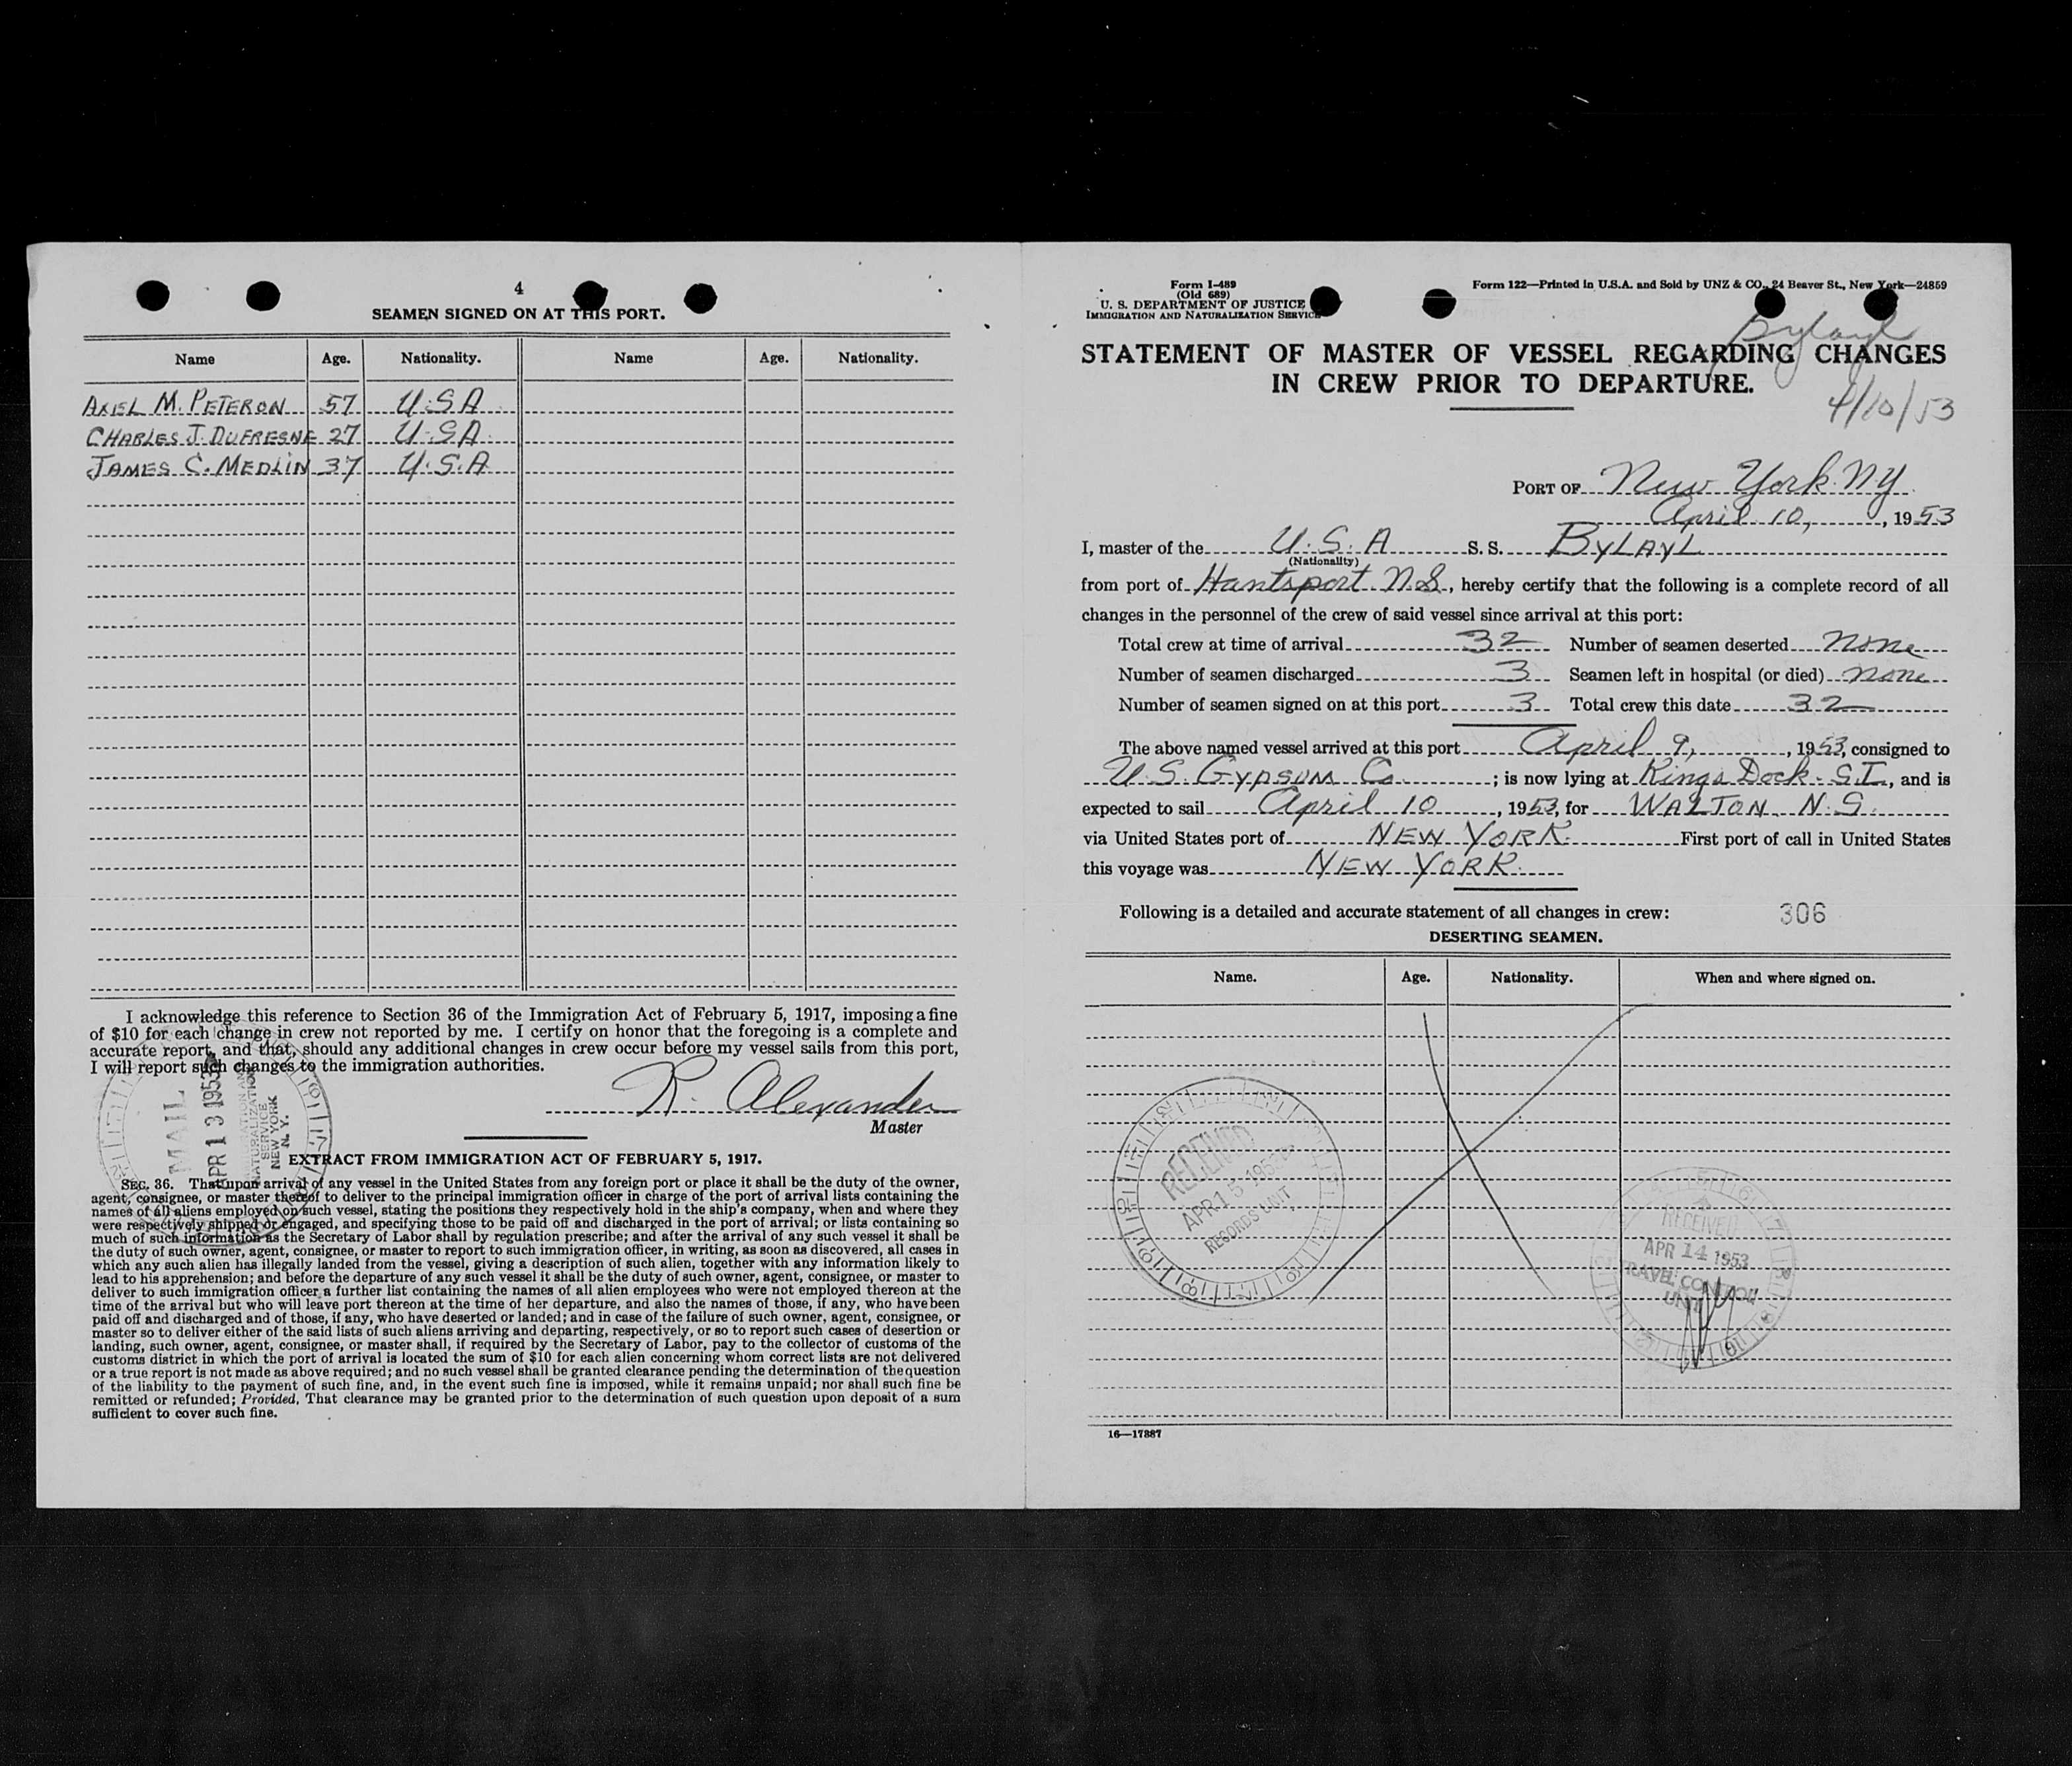 4
SEAMEN SIGNED ON AT THIS PORT.
Name Age. Nationality. Name Age. Nationality.
AXEL M. PETERON 57 U.S.A
CHARLES J. DUFRESNE 27 U.S.A.
JAMES C. MEDLIN 37 U.S.A
I acknowledge this reference to Section 36 of the Immigration Act of February 5, 1917, imposing a fine
of $10 for each change in crew not reported by me. I certify on honor that the foregoing is a complete and
accurate report, and that, should any additional changes in crew occur before my vessel sails from this port,
I will report such changes to the immigration authorities.
R. Alexander
Master
MAIL
APR 13 1953
NATURALIZATION
SERVICE
NEW YORK
N. Y.
EXTRACT FROM IMMIGRATION ACT OF FEBRUARY 5, 1917.
SEC. 36. That upon arrival of any vessel in the United States from any foreign port or place it shall be the duty of the owner,
agent, consignee, or master thereof to deliver to the principal immigration officer in charge of the port of arrival lists containing the
names of all aliens employed on such vessel, stating the positions they respectively hold in the ship's company, when and where they
were respectively shipped or engaged, and specifying those to be paid off and discharged in the port of arrival; or lists containing so
much of such information as the Secretary of Labor shall by regulation prescribe; and after the arrival of any such vessel it shall be
the duty of such owner, agent, consignee, or master to report to such immigration officer, in writing, as soon as discovered, all cases in
which any such alien has illegally landed from the vessel, giving a description of such alien, together with any information likely to
lead to his apprehension; and before the departure of any such vessel it shall be the duty of such owner, agent, consignee, or master to
deliver to such immigration officer a further list containing the names of all alien employees who were not employed thereon at the
time of the arrival but who will leave port thereon at the time of her departure, and also the names of those, if any, who have been
paid off and discharged and of those, if any, who have deserted or landed; and in case of the failure of such owner, agent, consignee, or
master so to deliver either of the said lists of such aliens arriving and departing, respectively, or so to report such cases of desertion or
landing, such owner, agent, consignee, or master shall, if required by the Secretary of Labor, pay to the collector of customs of the
customs district in which the port of arrival is located the sum of $10 for each alien concerning whom correct lists are not delivered
or a true report is not made as above required; and no such vessel shall be granted clearance pending the determination of the question
of the liability to the payment of such fine, and, in the event such fine is imposed, while it remains unpaid; nor shall such fine be
remitted or refunded; Provided, That clearance may be granted prior to the determination of such question upon deposit of a sum
sufficient to cover such fine.
Form I-489
(Old 689)
U. S. DEPARTMENT OF JUSTICE
IMMIGRATION AND NATURALIZATION SERVICE
Form 122—Printed in U.S.A. and Sold by UNZ & CO., 24 Beaver St., New York—24859
Bylayl
STATEMENT OF MASTER OF VESSEL REGARDING CHANGES
IN CREW PRIOR TO DEPARTURE.
4/10/53
PORT OF New York NY
April 10, , 1953
I, master of the U.S.A S. S. BYLAYL
(Nationality)
from port of Hantsport N.S., hereby certify that the following is a complete record of all
changes in the personnel of the crew of said vessel since arrival at this port:
Total crew at time of arrival 32 Number of seamen deserted none
Number of seamen discharged 3 Seamen left in hospital (or died) none
Number of seamen signed on at this port 3 Total crew this date 32
The above named vessel arrived at this port April 9, , 1953, consigned to
U.S. GYPSUM Co ; is now lying at Kings Dock. S.I., and is
expected to sail April 10 , 1953, for WALTON, N.S.
via United States port of NEW YORK. First port of call in United States
this voyage was NEW YORK.
Following is a detailed and accurate statement of all changes in crew: 306
DESERTING SEAMEN.
Name. Age. Nationality. When and where signed on.
RECEIVED
APR 15 195
RECORDS UNIT
RECEIVED
APR 14 1953
TRAVEL CONTROL
UNIT
16—17887